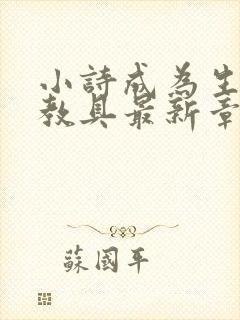 小詩成為生
教具最新章
蘇國平